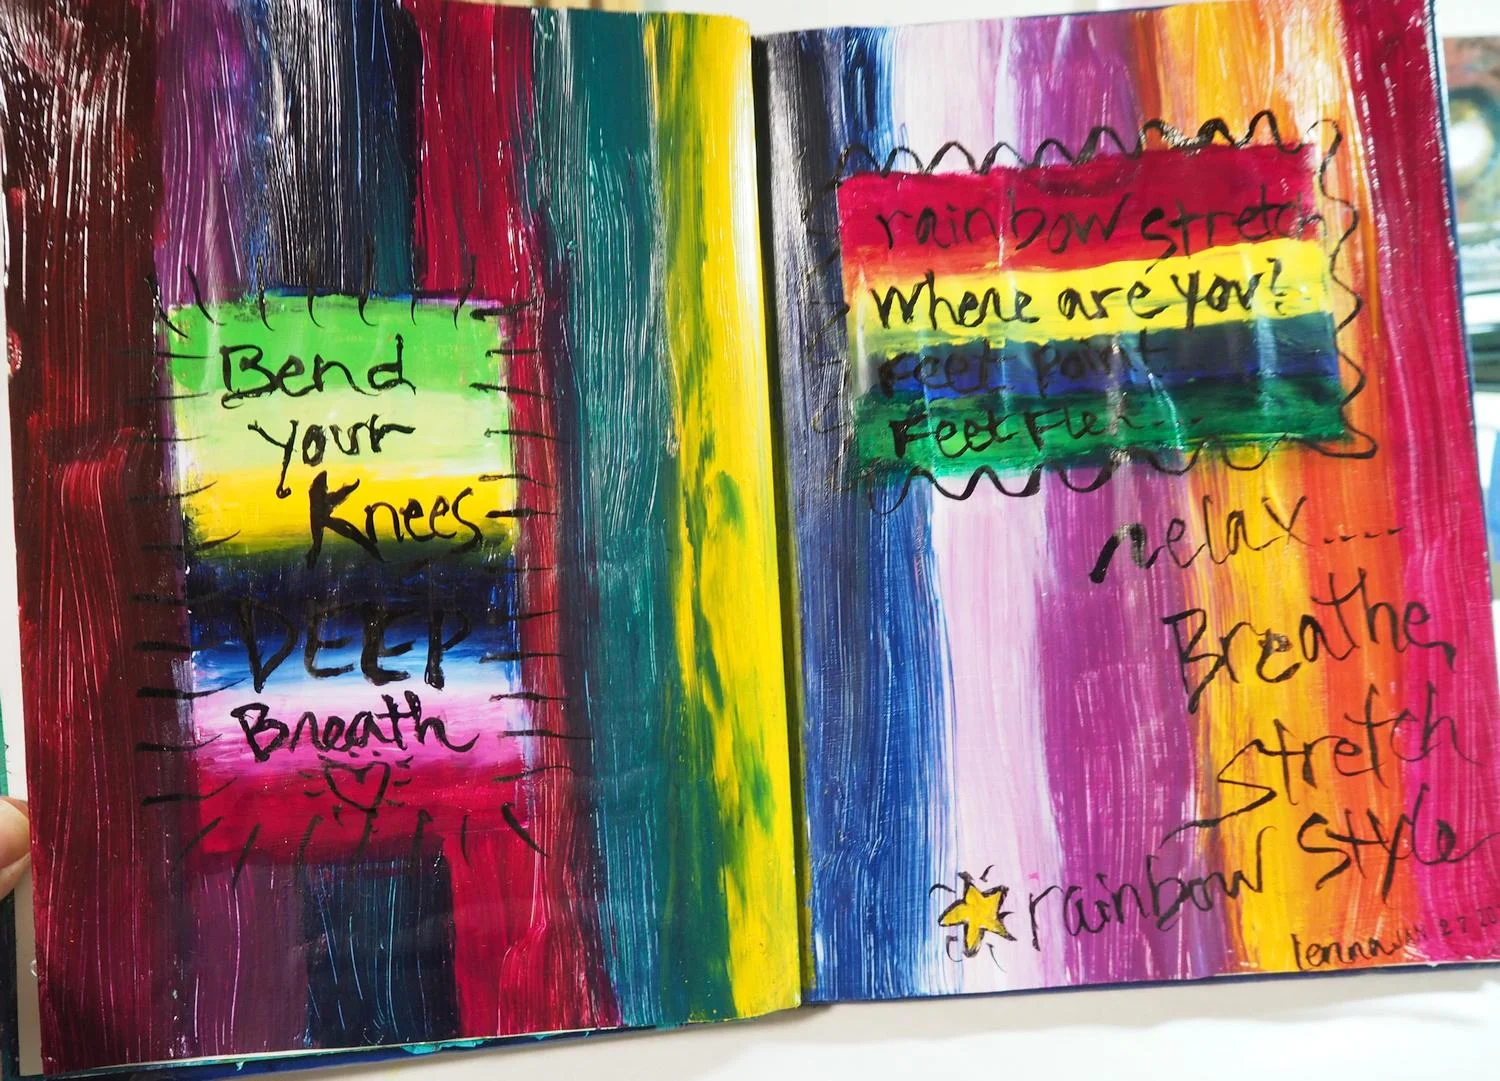 Bend
your
Knees
DEEP
Breath
rainbow stretch
Where are you?
Feet Point
Feet Flex...
relax....
Breathe,
Stretch
rainbow style
lenna JAN 27 20